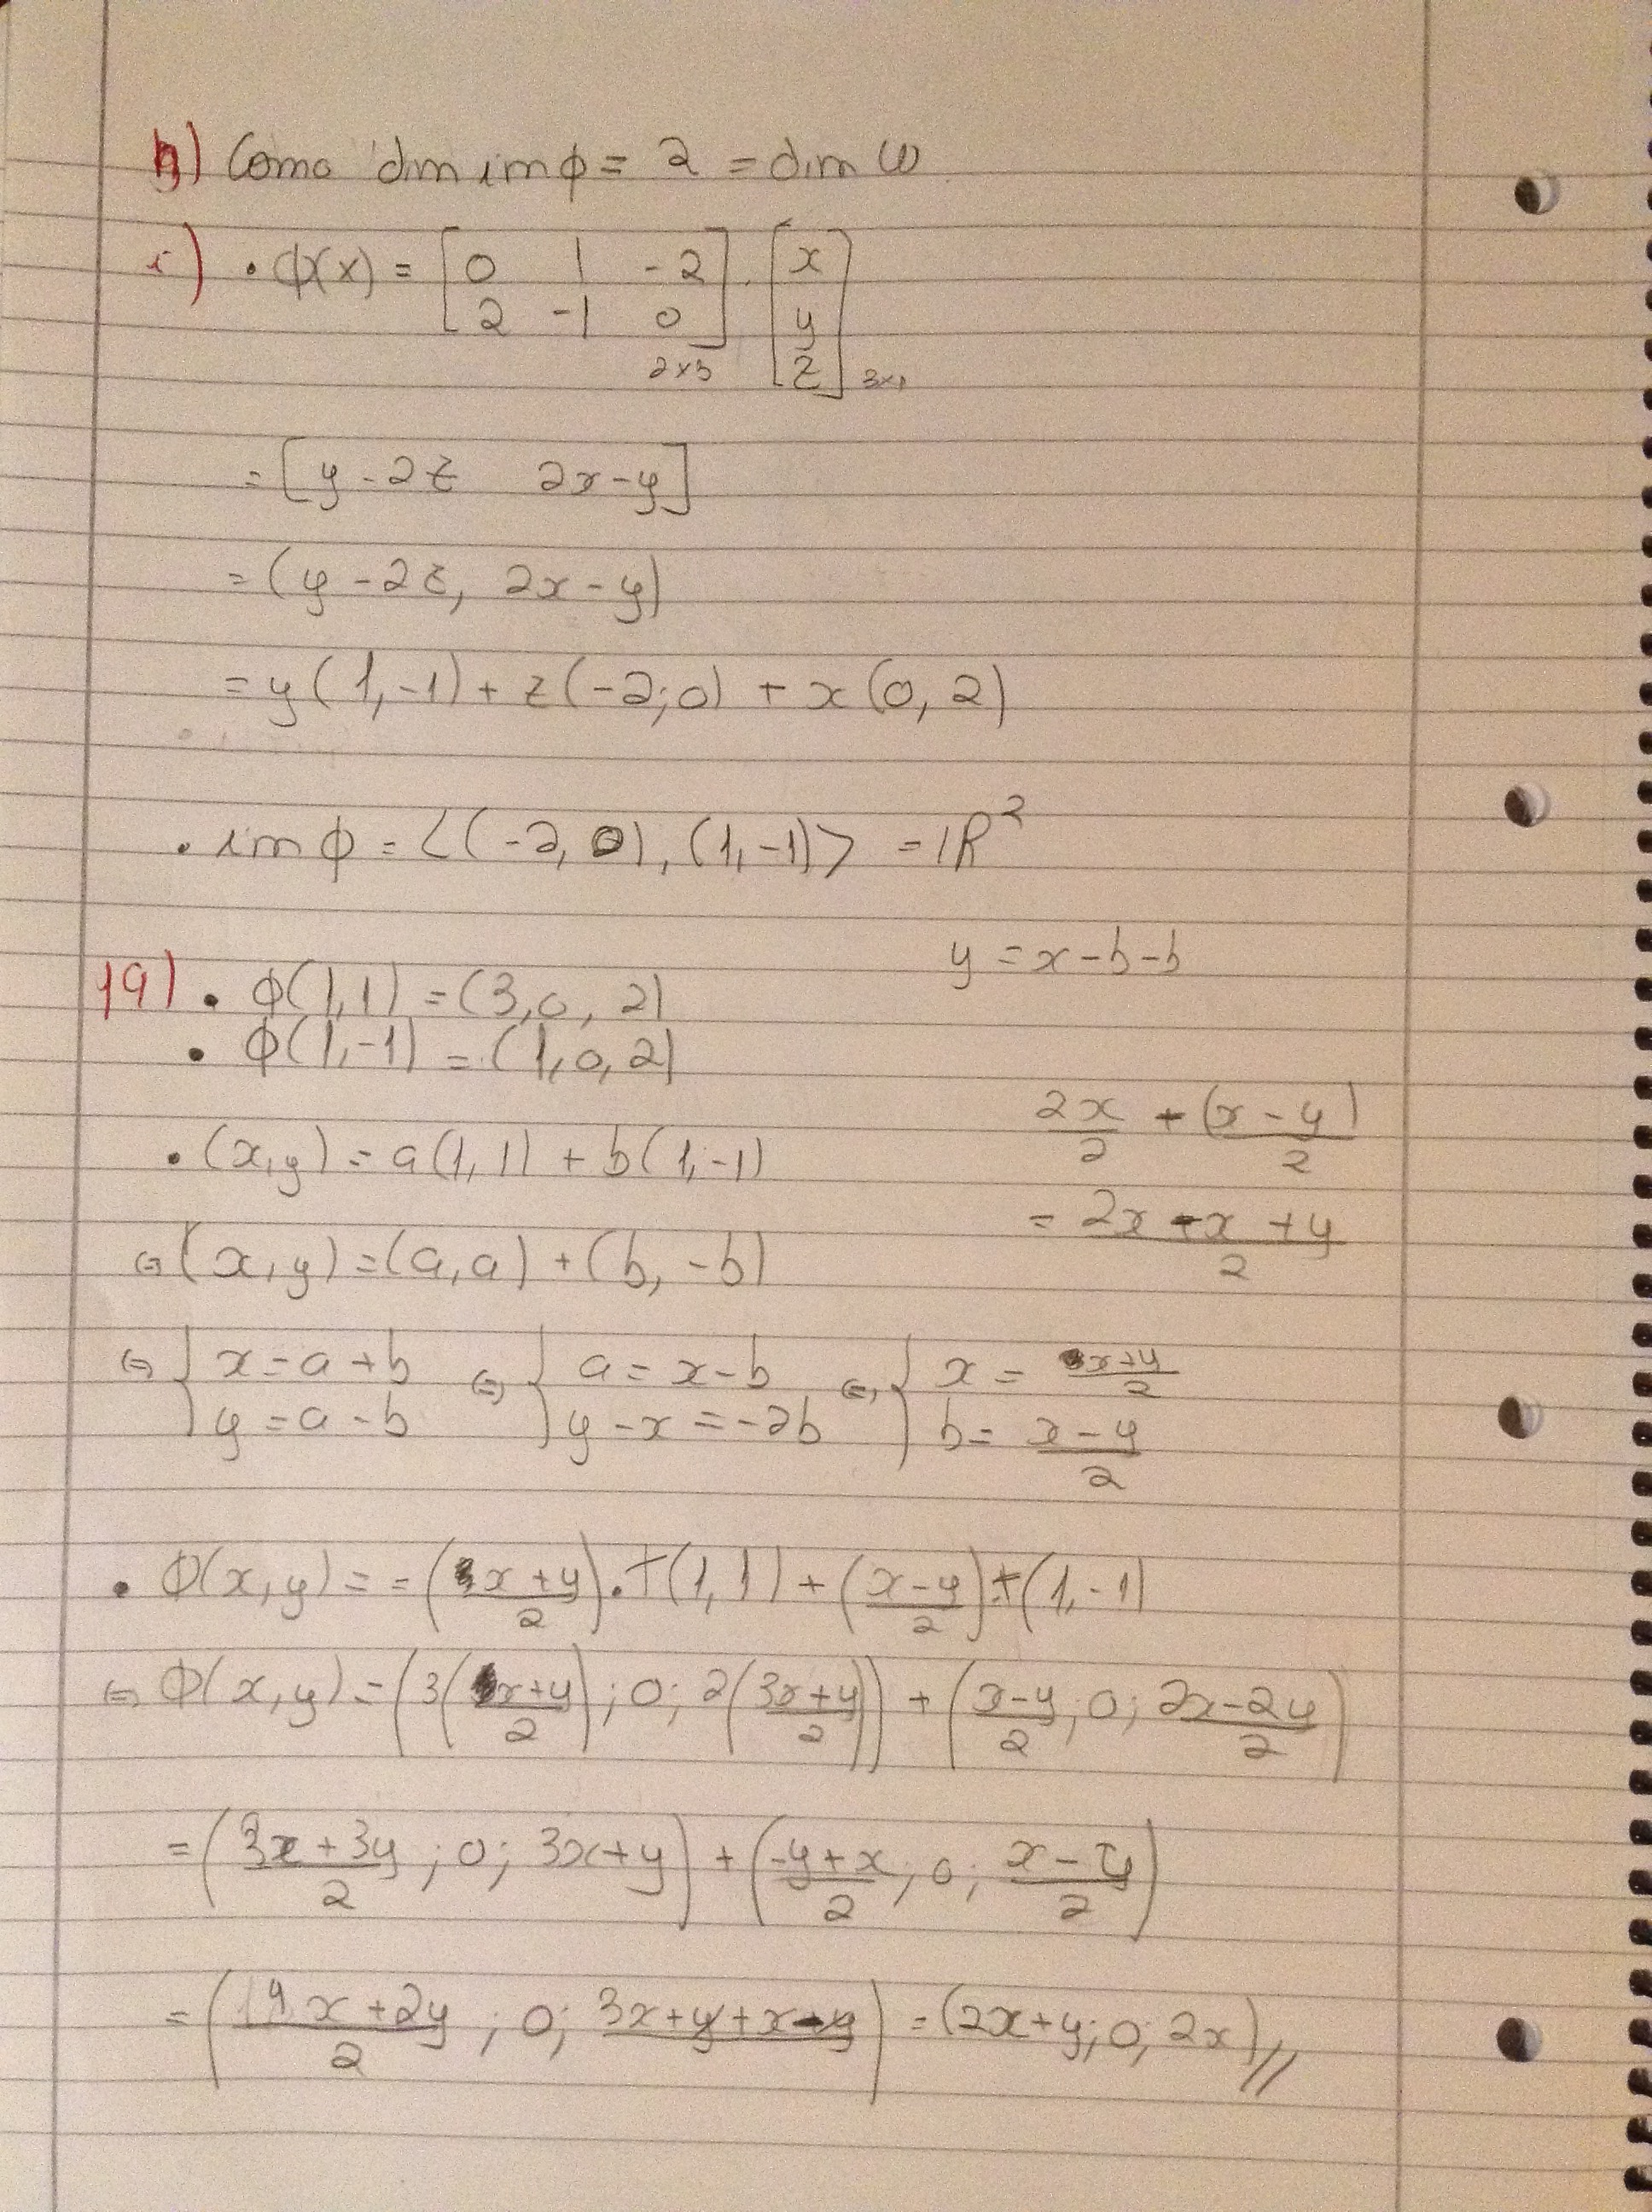 h) Como dim im φ = 2 = dim W
i) • φ(x) = [0 1 -2; 2 -1 0] 2×3 · [x; y; z] 3×1
= [y - 2z 2x - y]
= (y - 2z, 2x - y)
= y(1, -1) + z(-2; 0) + x(0, 2)
• im φ = <(-2, 0), (1, -1)> = IR²
y = x - b - b
19) • φ(1,1) = (3, 0, 2)
• φ(1,-1) = (1, 0, 2)
2x/2 - (x - y)/2
• (x,y) = a(1,1) + b(1,-1)
= (2x - x + y)/2
⇔ (x,y) = (a,a) + (b,-b)
⇔ { x = a + b ; y = a - b ⇔ { a = x - b ; y - x = -2b ⇔ { x = (x+y)/2 ; b = (x - y)/2
• φ(x,y) = = ((x + y)/2) · T(1,1) + ((x - y)/2) · T(1,-1)
⇔ φ(x,y) = (3((x+y)/2); 0; 2((3x+y)/2)) + ((x-y)/2; 0; (2x-2y)/2)
= ((3x + 3y)/2; 0; 3x+y) + ((-y+x)/2; 0; (x - y)/2)
= ((4x + 2y)/2; 0; 3x+y+x-y) = (2x+y; 0; 2x)//